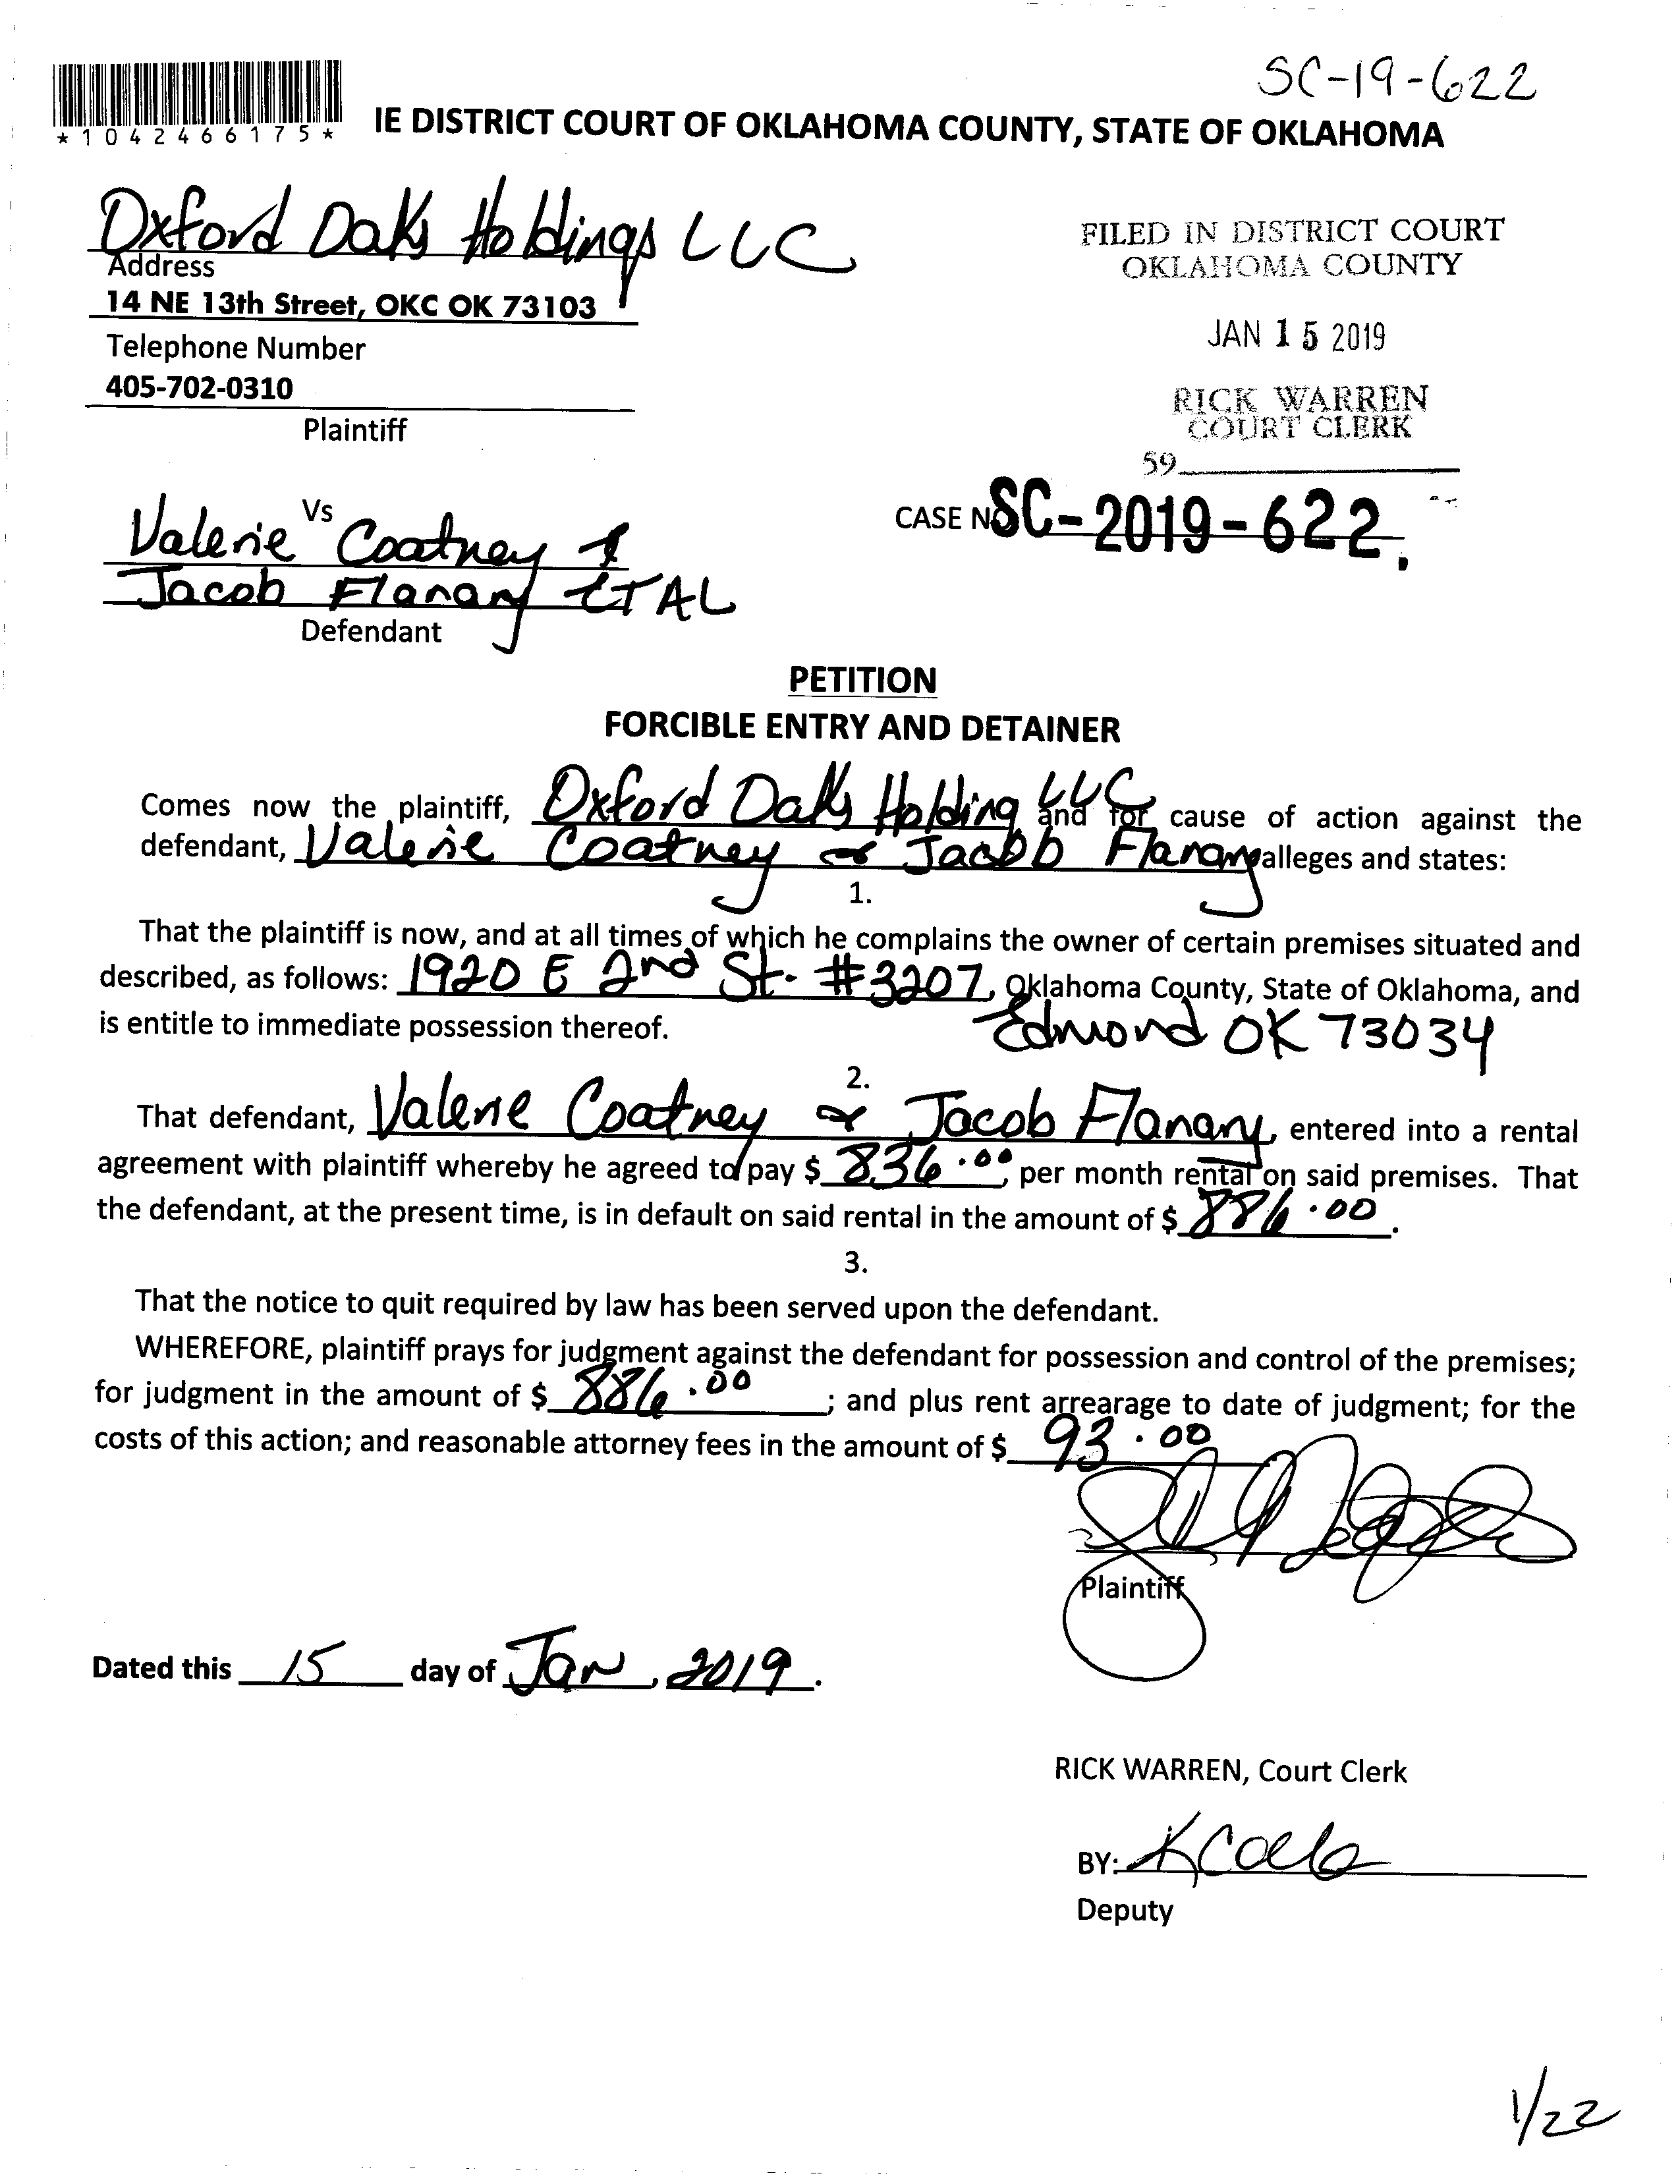 SC-19-622
*1042466175*
IE DISTRICT COURT OF OKLAHOMA COUNTY, STATE OF OKLAHOMA
Oxford Oaks Holdings LLC
Address
14 NE 13th Street, OKC OK 73103
Telephone Number
405-702-0310
Plaintiff
FILED IN DISTRICT COURT
OKLAHOMA COUNTY
JAN 15 2019
RICK WARREN
COURT CLERK
59
CASE NO SC-2019-622
Vs
Valerie Coatney &
Jacob Flanary ETAL
Defendant
PETITION
FORCIBLE ENTRY AND DETAINER
Comes now the plaintiff, Oxford Oaks Holding LLC and for cause of action against the
defendant, Valerie Coatney & Jacob Flanary alleges and states:
1.
That the plaintiff is now, and at all times of which he complains the owner of certain premises situated and
described, as follows: 1920 E 2nd St. #3207, Oklahoma County, State of Oklahoma, and
is entitle to immediate possession thereof. Edmond OK 73034
2.
That defendant, Valerie Coatney & Jacob Flanary, entered into a rental
agreement with plaintiff whereby he agreed to pay $ 836.00, per month rental on said premises. That
the defendant, at the present time, is in default on said rental in the amount of $ 886.00.
3.
That the notice to quit required by law has been served upon the defendant.
WHEREFORE, plaintiff prays for judgment against the defendant for possession and control of the premises;
for judgment in the amount of $ 886.00; and plus rent arrearage to date of judgment; for the
costs of this action; and reasonable attorney fees in the amount of $ 93.00
Plaintiff
Dated this 15 day of Jan, 2019.
RICK WARREN, Court Clerk
BY:
Deputy
1/22